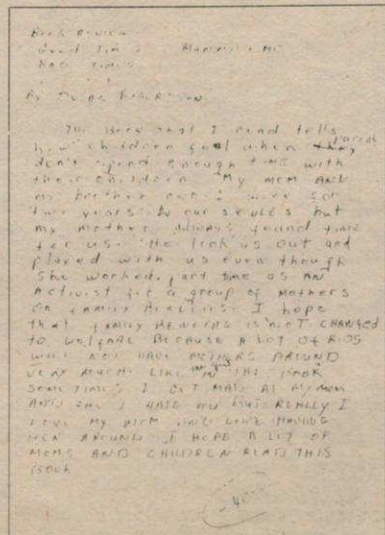 Book Review
Good Times
Bad Times
By
The Book that I read tells
how children feel when parent they
don't spend enough time with
their children. My mom AND
my brother and I were for
two years by ourselves but
my mother always found time
for us. He took us out and
played with us even though
she worked part time as AN
Activist for a group of mothers
on family Benefits. I hope
that family Benefits is NOT CHANGED
to welfare Because A LOT OF KIDS
WILL NOT HAVE MOTHERS AROUND
VERY MUCH. LIKE IN THE BOOK
SOMETIMES I GET MAD AT MY MOM
AND SAY I HATE YOU BUT REALLY I
LOVE MY MOM AND LOVE HAVING
HER AROUND. I HOPE A LOT OF
MOMS AND CHILDREN READ THIS
BOOK